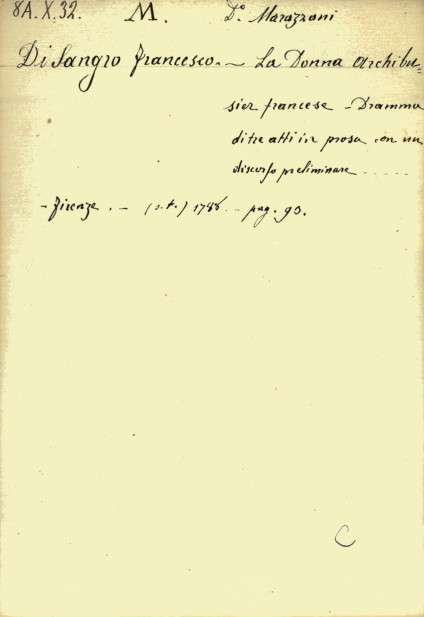 8A.X.32. M. D.º Marazzani
Di Sangro Francesco. - La Donna archibu=
sier francese - Dramma
di tre atti in prosa con un
discorso preliminare - - - - -
- Firenze . - (s.t.) - pag. 93.
C